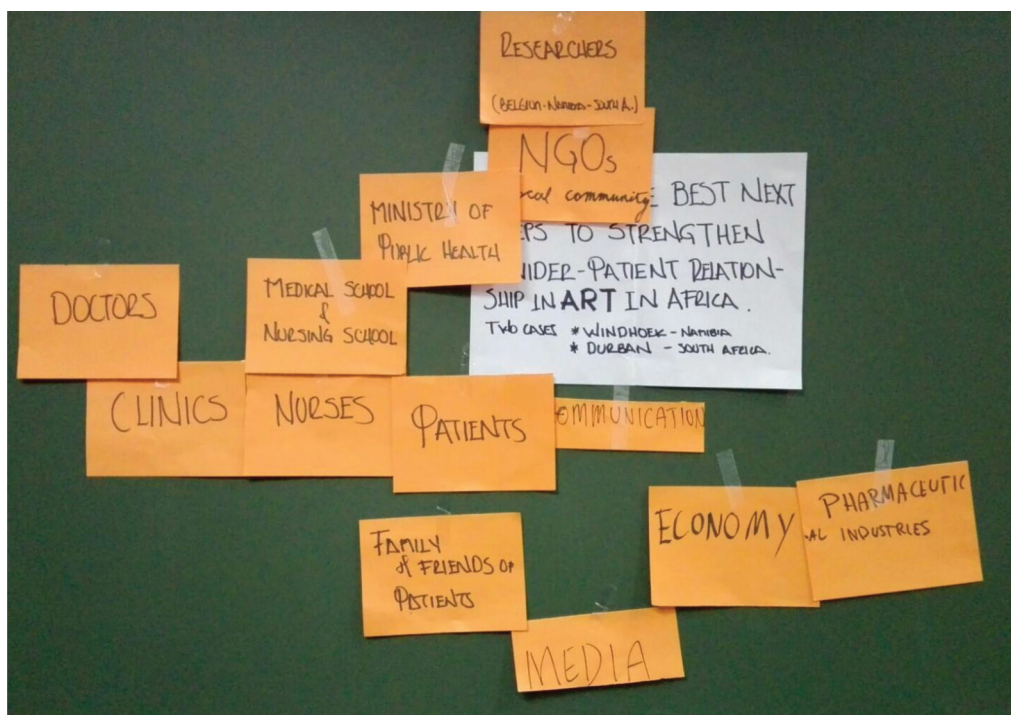 RESEARCHERS
(BELGIUM-NAMIBIA-SOUTH A.)
NGOs
local community
E BEST NEXT
EPS TO STRENGTHEN
VIDER-PATIENT RELATION-
SHIP IN ART IN AFRICA.
TWO CASES * WINDHOEK - NAMIBIA
* DURBAN - SOUTH AFRICA.
MINISTRY OF
PUBLIC HEALTH
MEDICAL SCHOOL
&
NURSING SCHOOL
DOCTORS
CLINICS
NURSES
PATIENTS
OMMUNICATION
ECONOMY
PHARMACEUTIC
AL INDUSTRIES
FAMILY
& FRIENDS OF
PATIENTS
MEDIA